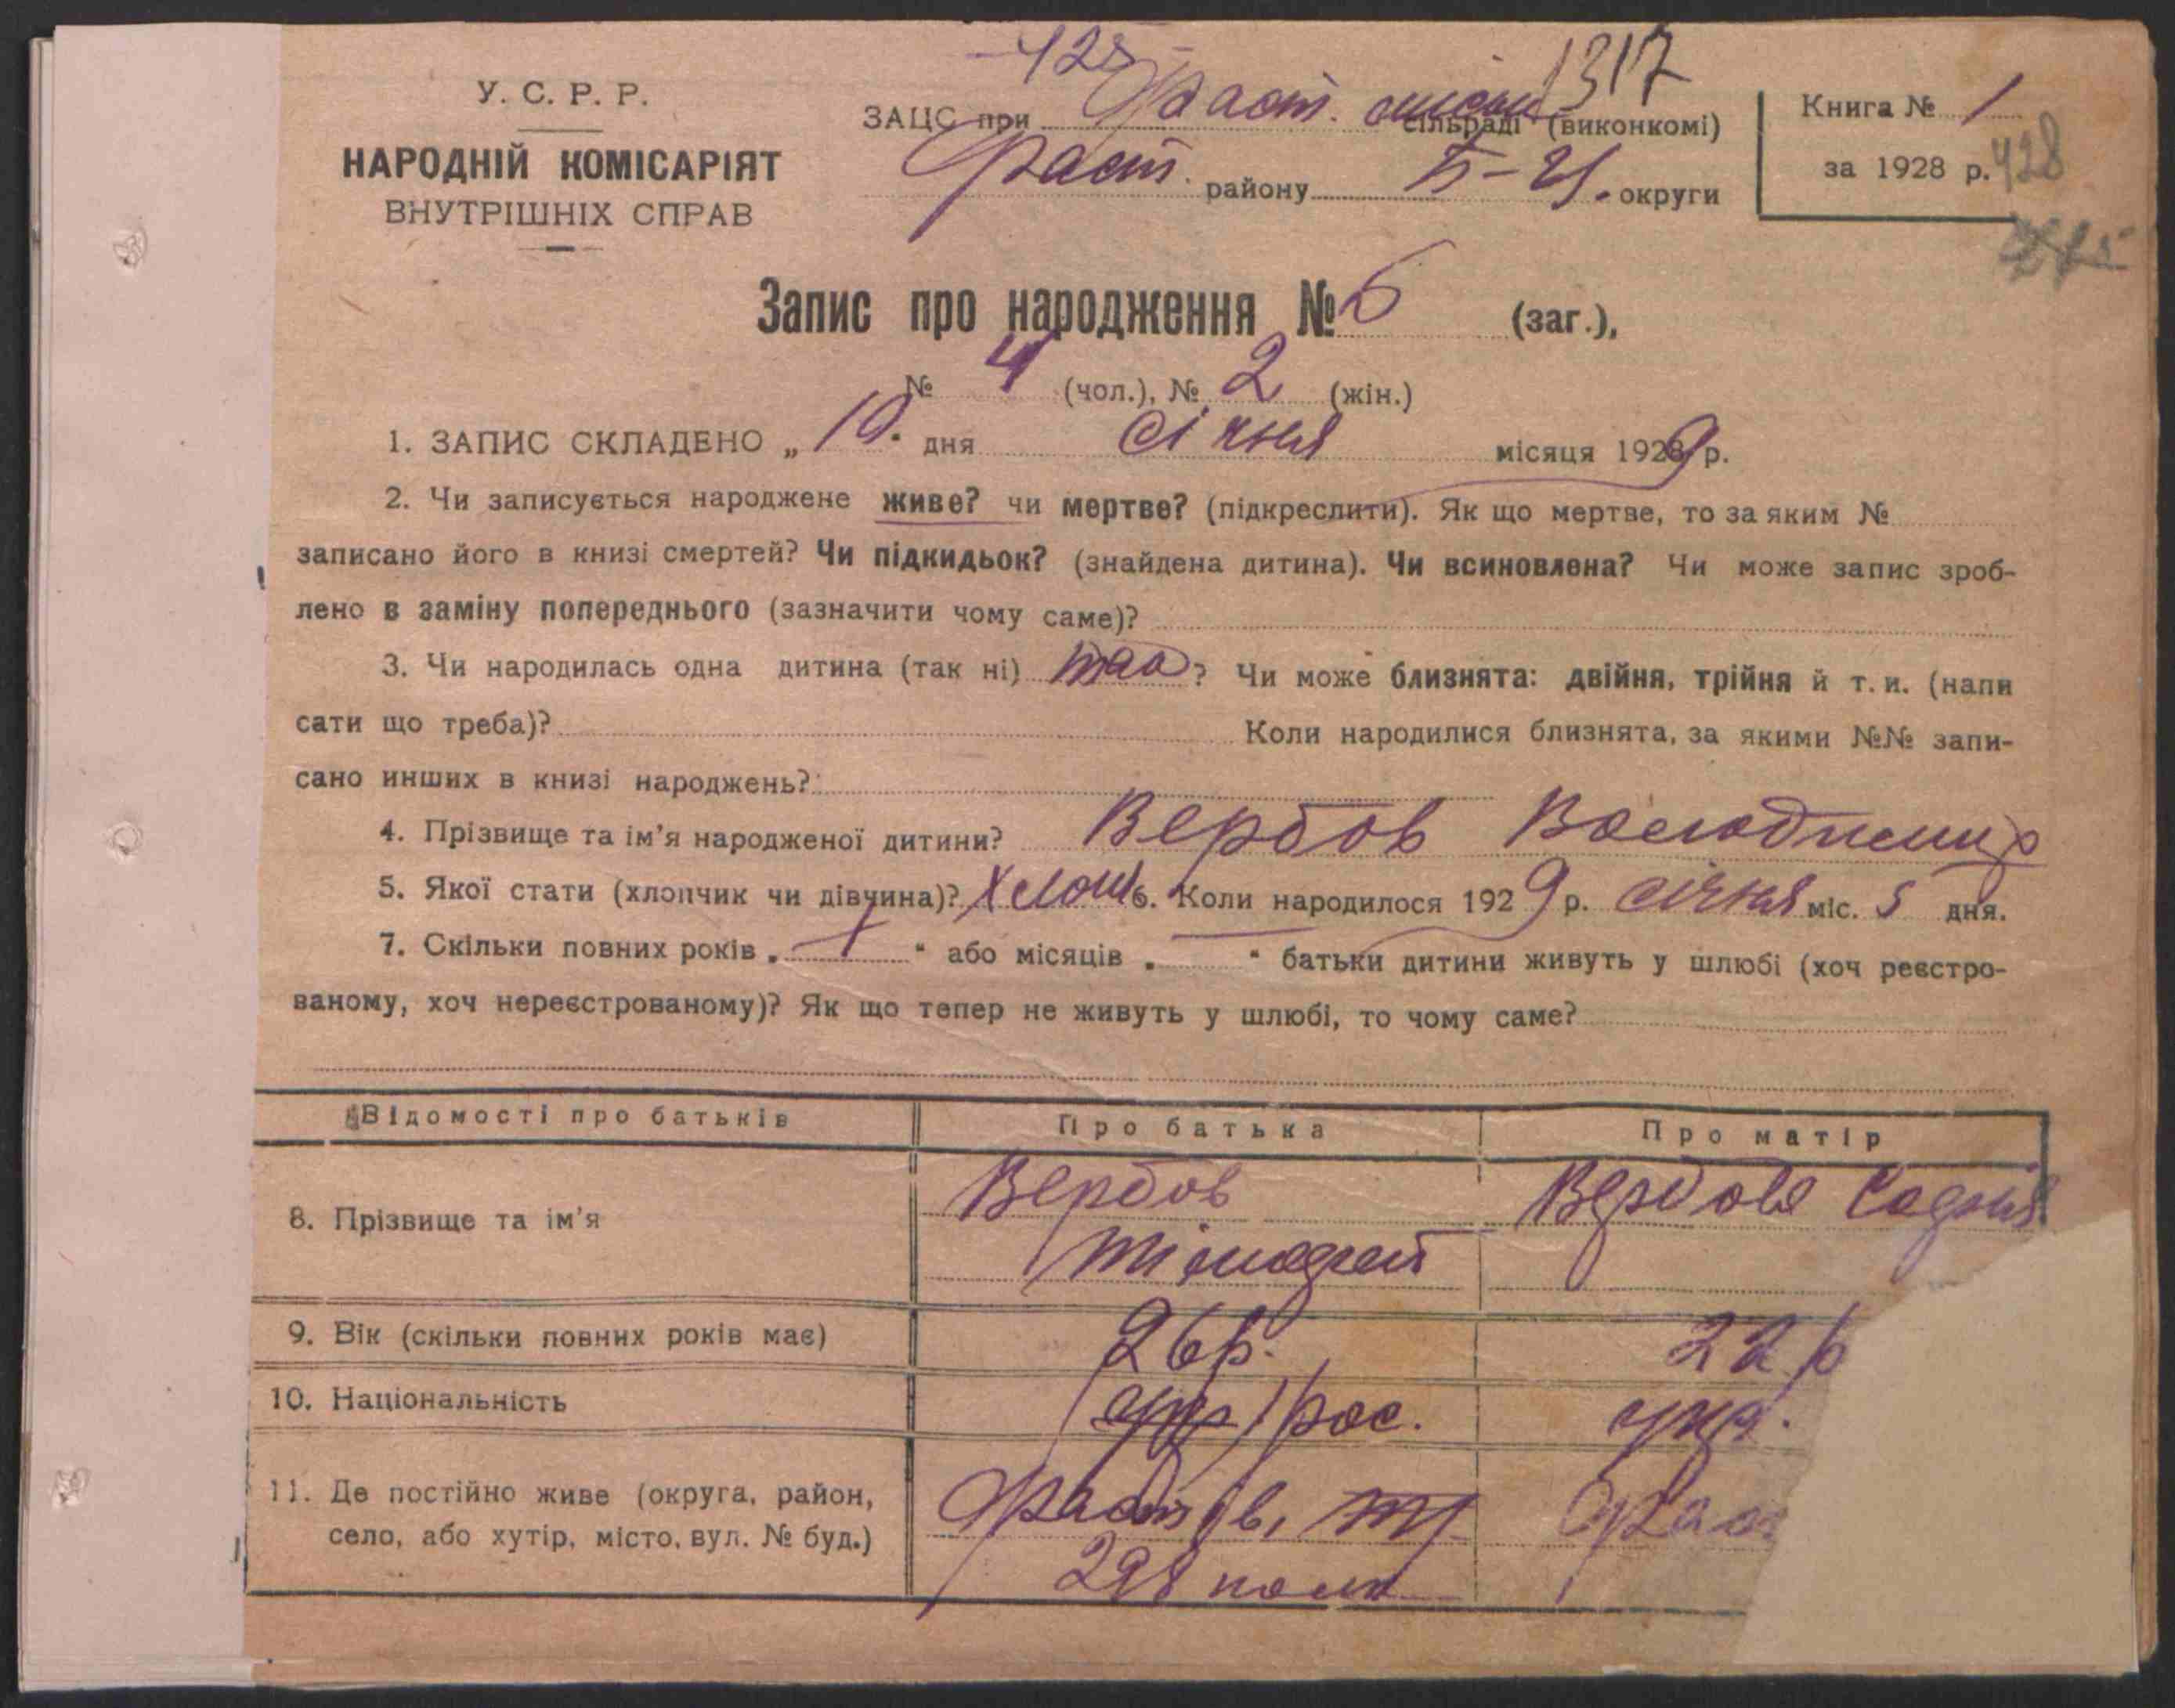 428
1317
У. С. Р. Р.
НАРОДНІЙ КОМІСАРІЯТ
ВНУТРІШНІХ СПРАВ
ЗАЦС при Фаст. сільраді (виконкомі)
Фаст. району округи
Книга № 1
за 1928 р.
428
Запис про народження № 6 (заг.),
№ 4 (чол.), № 2 (жін.)
1. ЗАПИС СКЛАДЕНО „ 10 " дня січня місяця 1929 р.
2. Чи записується народжене живе? чи мертве? (підкреслити). Як що мертве, то за яким №
записано його в книзі смертей? Чи підкидьок? (знайдена дитина). Чи всиновлена? Чи може запис зроб-
лено в заміну попереднього (зазначити чому саме)?
3. Чи народилась одна дитина (так ні) так? Чи може близнята: двійня, трійня й т. и. (напи
сати що треба)? Коли народилися близнята, за якими №№ запи-
сано инших в книзі народжень?
4. Прізвище та ім'я народженої дитини? Вербов Володимир
5. Якої стати (хлопчик чи дівчина)? Хлопч 6. Коли народилося 1929 р. січня міс. 5 дня.
7. Скільки повних років „ 1 " або місяців „ — " батьки дитини живуть у шлюбі (хоч реєстро-
ваному, хоч нереєстрованому)? Як що тепер не живуть у шлюбі, то чому саме?
Відомості про батьків Про батька Про матір
8. Прізвище та ім'я Вербов Тімофей Вербова Софія
9. Вік (скільки повних років має) 26 р. 22 р
10. Національність рос. укр.
11. Де постійно живе (округа, район, Фастів, Фаст
село, або хутір, місто, вул. № буд.) 298 полк